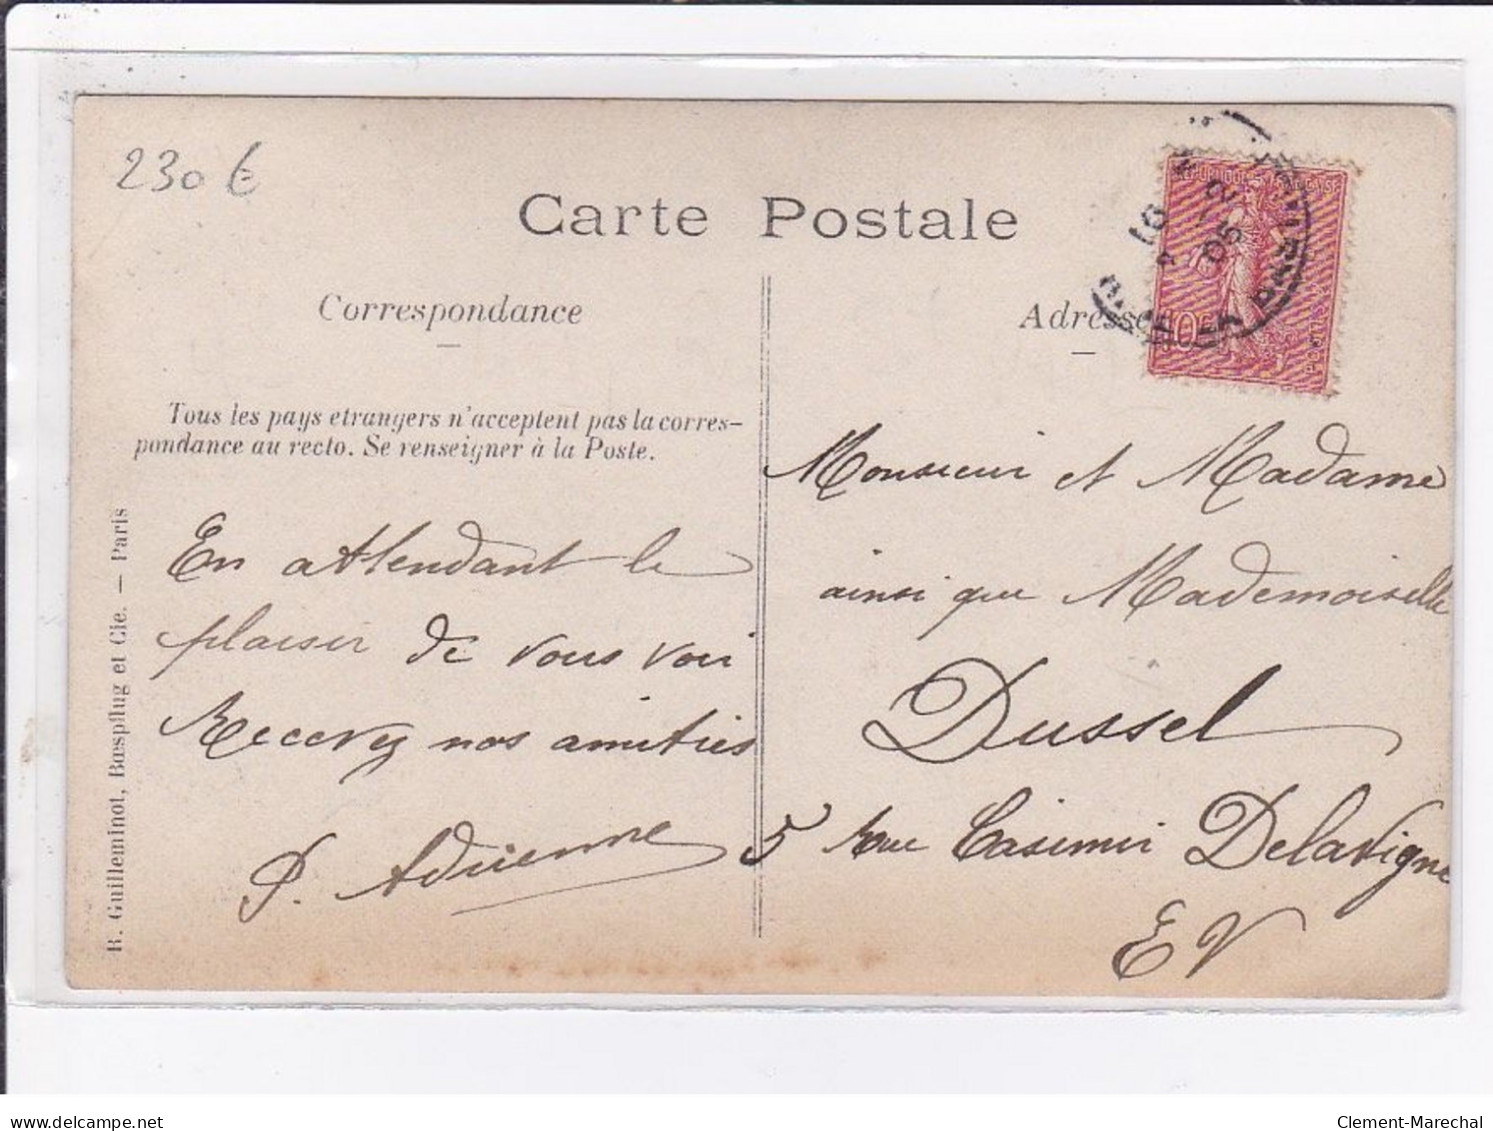 230 €
Carte Postale
Correspondance
Adresse
Tous les pays etrangers n'acceptent pas la corres-
pondance au recto. Se renseigner à la Poste.
REPUBLIQUE FRANÇAISE
POSTES
10c
16
05
En attendant le
plaisir de vous voir
Recevez nos amitiés
P. Adrienne
Monsieur et Madame
ainsi que Mademoiselle
Dussel
5 Rue Casimir Delavigne
EV
R. Guilleminot, Bœspflug et Cie. — Paris
delcampe.net
Clement-Marechal